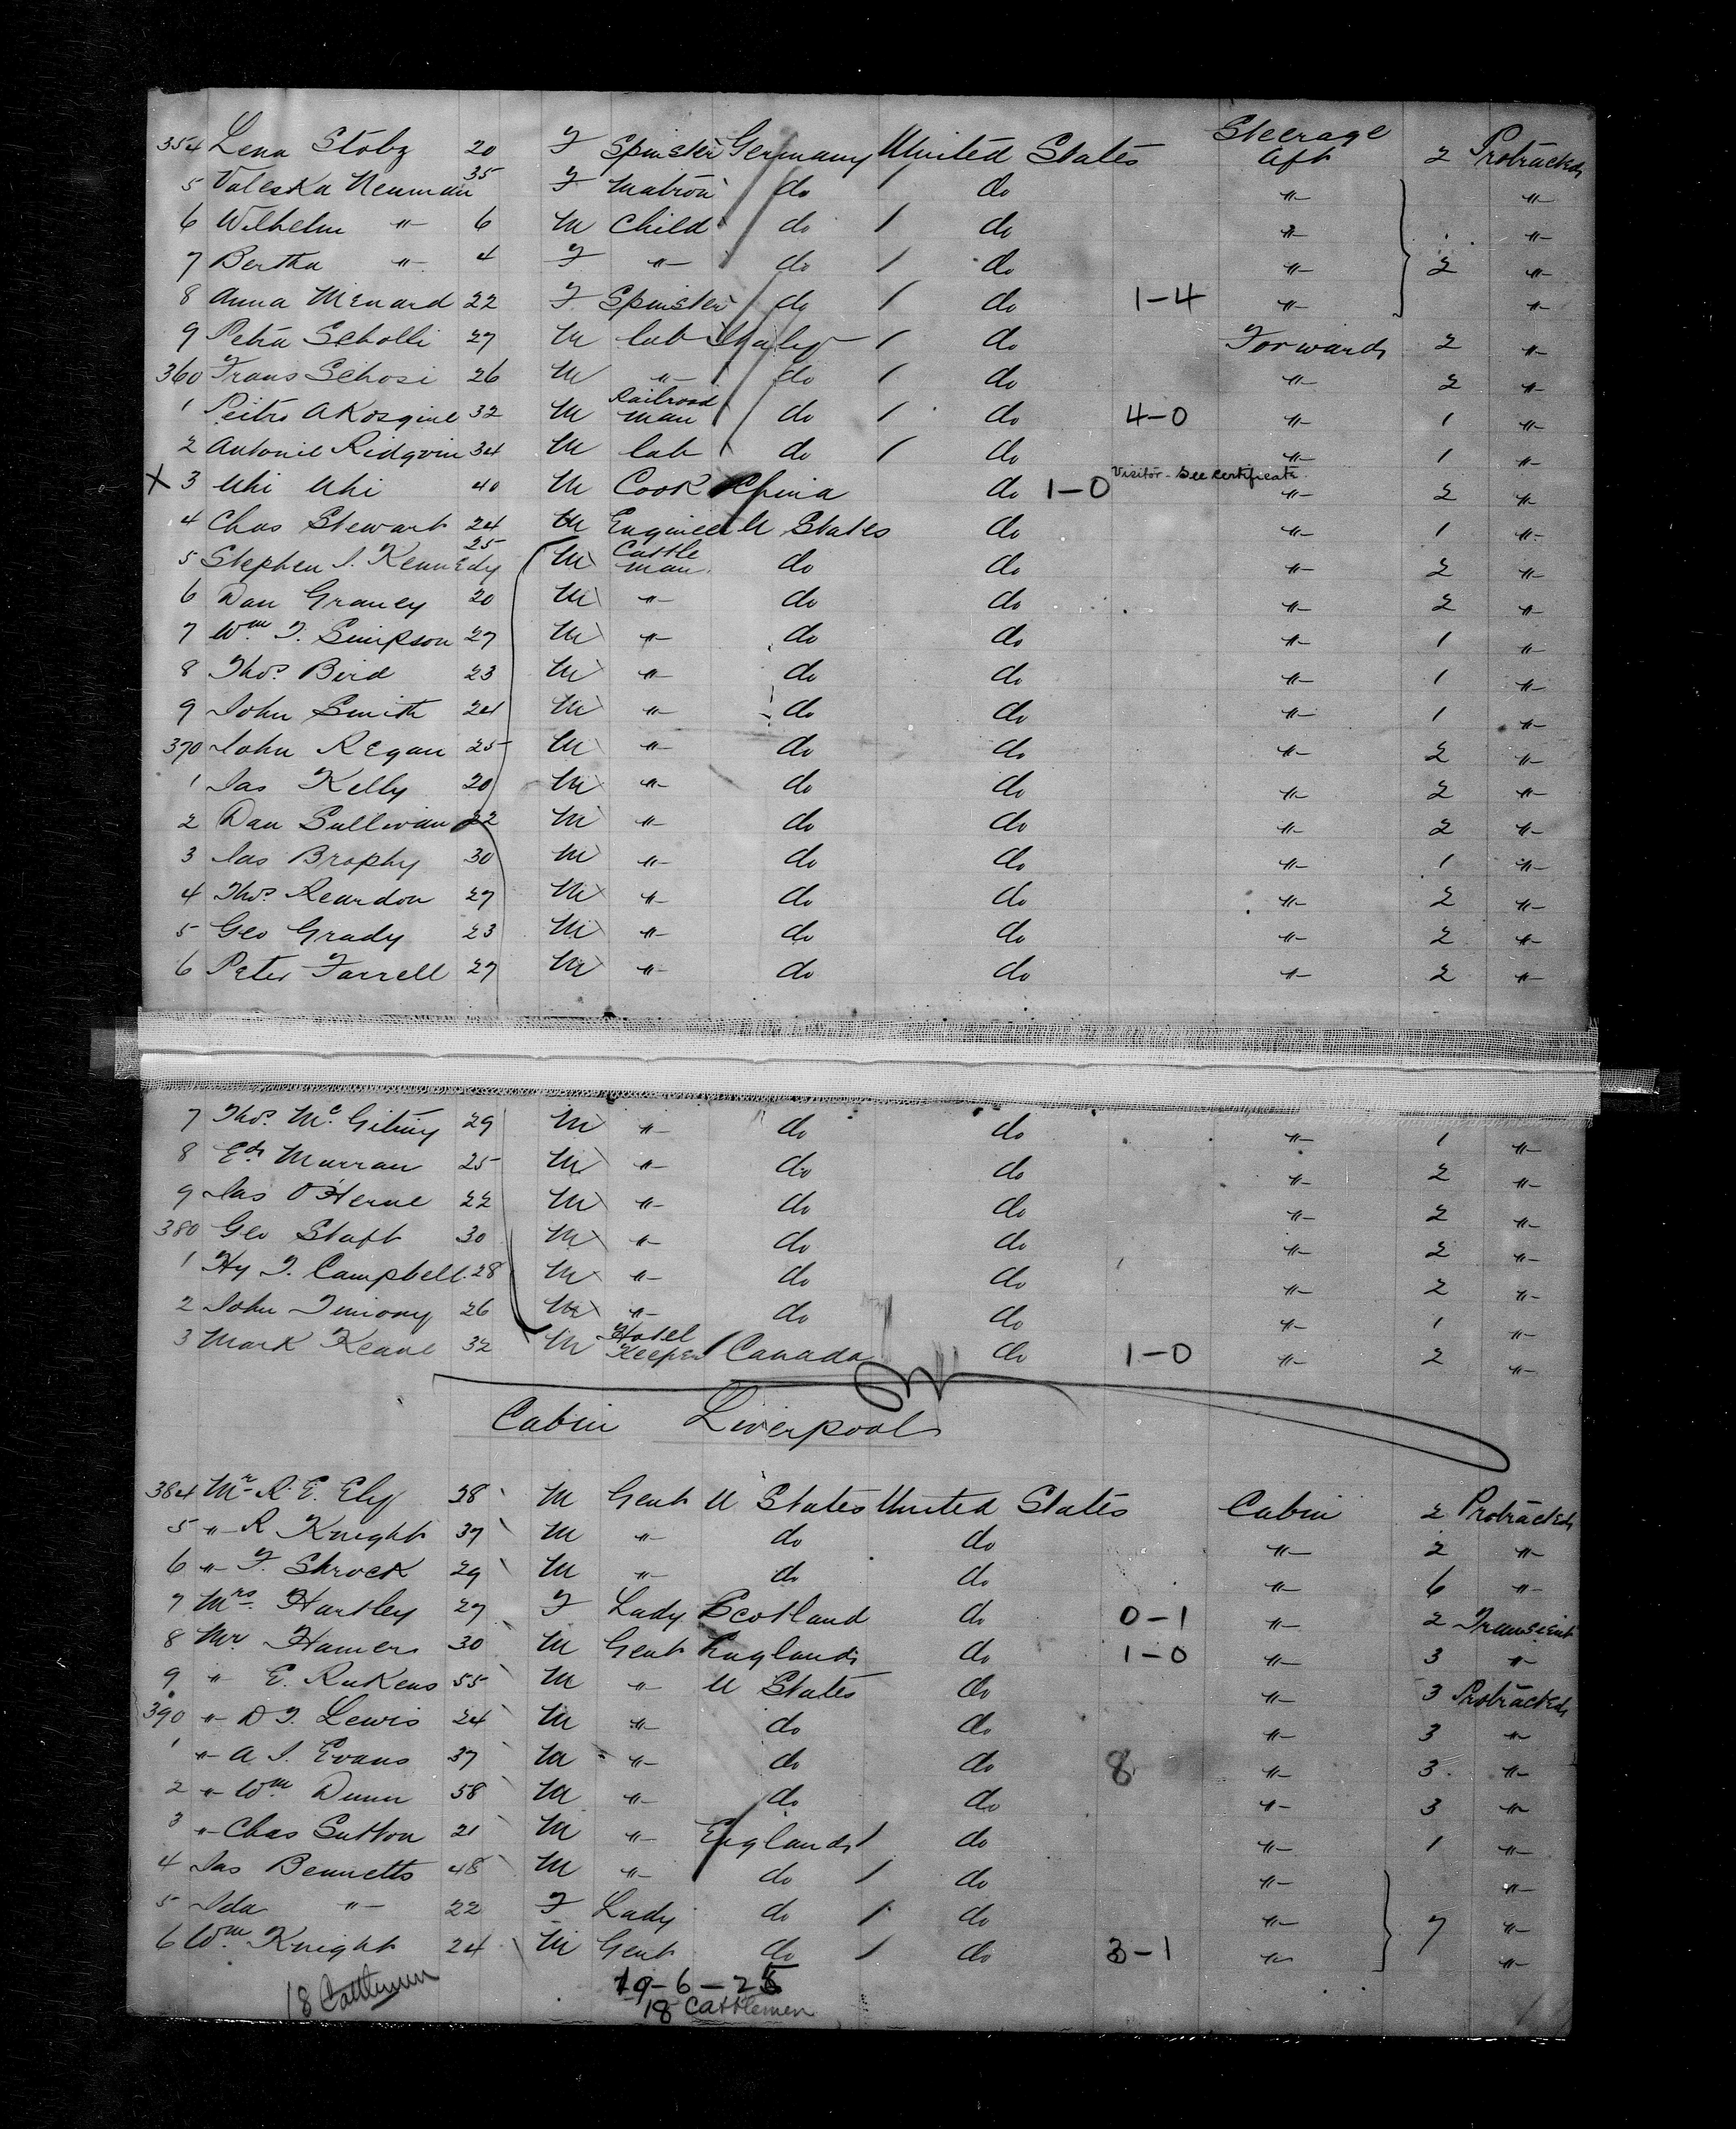 354 Lena Stobz 20 F Spinster Germany United States Steerage Aft 2 Protracted
5 Valeska Neuman 35 F Matron do do " "
6 Wilhelm " 6 M Child do / do " "
7 Bertha " 4 F " do / do " 2 "
8 Anna Menard 22 F Spinster do / do 1-4 " "
9 Petra Scholli 27 M lab Italy / do Forward 2 "
360 Frans Schosi 26 M " do / do " 2 "
1 Peitro 32 M Railroad man do / do 4-0 " 1 "
2 Antonie Ridgvin 34 M lab do / do " 1 "
X 3 Uhi Uhi 40 M Cook China do 1-0 Visitor - See Certificate " 2 "
4 Chas Stewart 24 M Engineer U States do " 1 "
5 Stephen J. Kennedy 25 M Cattle man do do " 2 "
6 Dan Graney 20 M " do do " 2 "
7 Wm T. Simpson 27 M " do do " 1 "
8 Thos. Bird 23 M " do do " 1 "
9 John Smith 24 M " do do " 1 "
370 John Regan 25 M " do do " 2 "
1 Jas Kelly 20 M " do do " 2 "
2 Dan Sullivan 22 M " do do " 2 "
3 Jas Brophy 30 M " do do " 1 "
4 Thos. Reardon 27 M " do do " 2 "
5 Geo Grady 23 M " do do " 2 "
6 Peter Farrell 27 M " do do " 2 "
7 Thos. Mc. 29 M " do do " 1 "
8 Ed. Murran 25 M " do do " 2 "
9 Jas O'Herne 22 M " do do " 2 "
380 Geo Staft 30 M " do do " 2 "
1 Hy J. Campbell 28 M " do do " 2 "
2 John Timony 26 M " do do " 1 "
3 Mark Keane 32 M Hotel Keeper / Canada do 1-0 " 2 "
Cabin Liverpool
384 Mr R. E. Ely 38 M Gent U States United States Cabin 2 Protracted
5 " R Knight 37 M " do do " 2 "
6 " F. Shrock 29 M " do do " 6 "
7 Mrs. Hartley 27 F Lady Scotland do 0-1 " 2 Transient
8 Mr. Hamer 30 M Gent England do 1-0 " 3 "
9 " E. Rukens 55 M " U States do " 3 Protracted
390 " D J. Lewis 24 M " do do " 3 "
1 " A J. Evans 37 M " do do 8 " 3 "
2 " Wm Dunn 58 M " do do " 3 "
3 " Chas Sutton 21 M " England / do " 1 "
4 Jas Bennetts 48 M " do / do " "
5 Ida " 22 F Lady do / do " 7 "
6 Wm Knight 24 M Gent do / do 3-1 " "
18 Cattlemen 19-6-25
18 Cattlemen